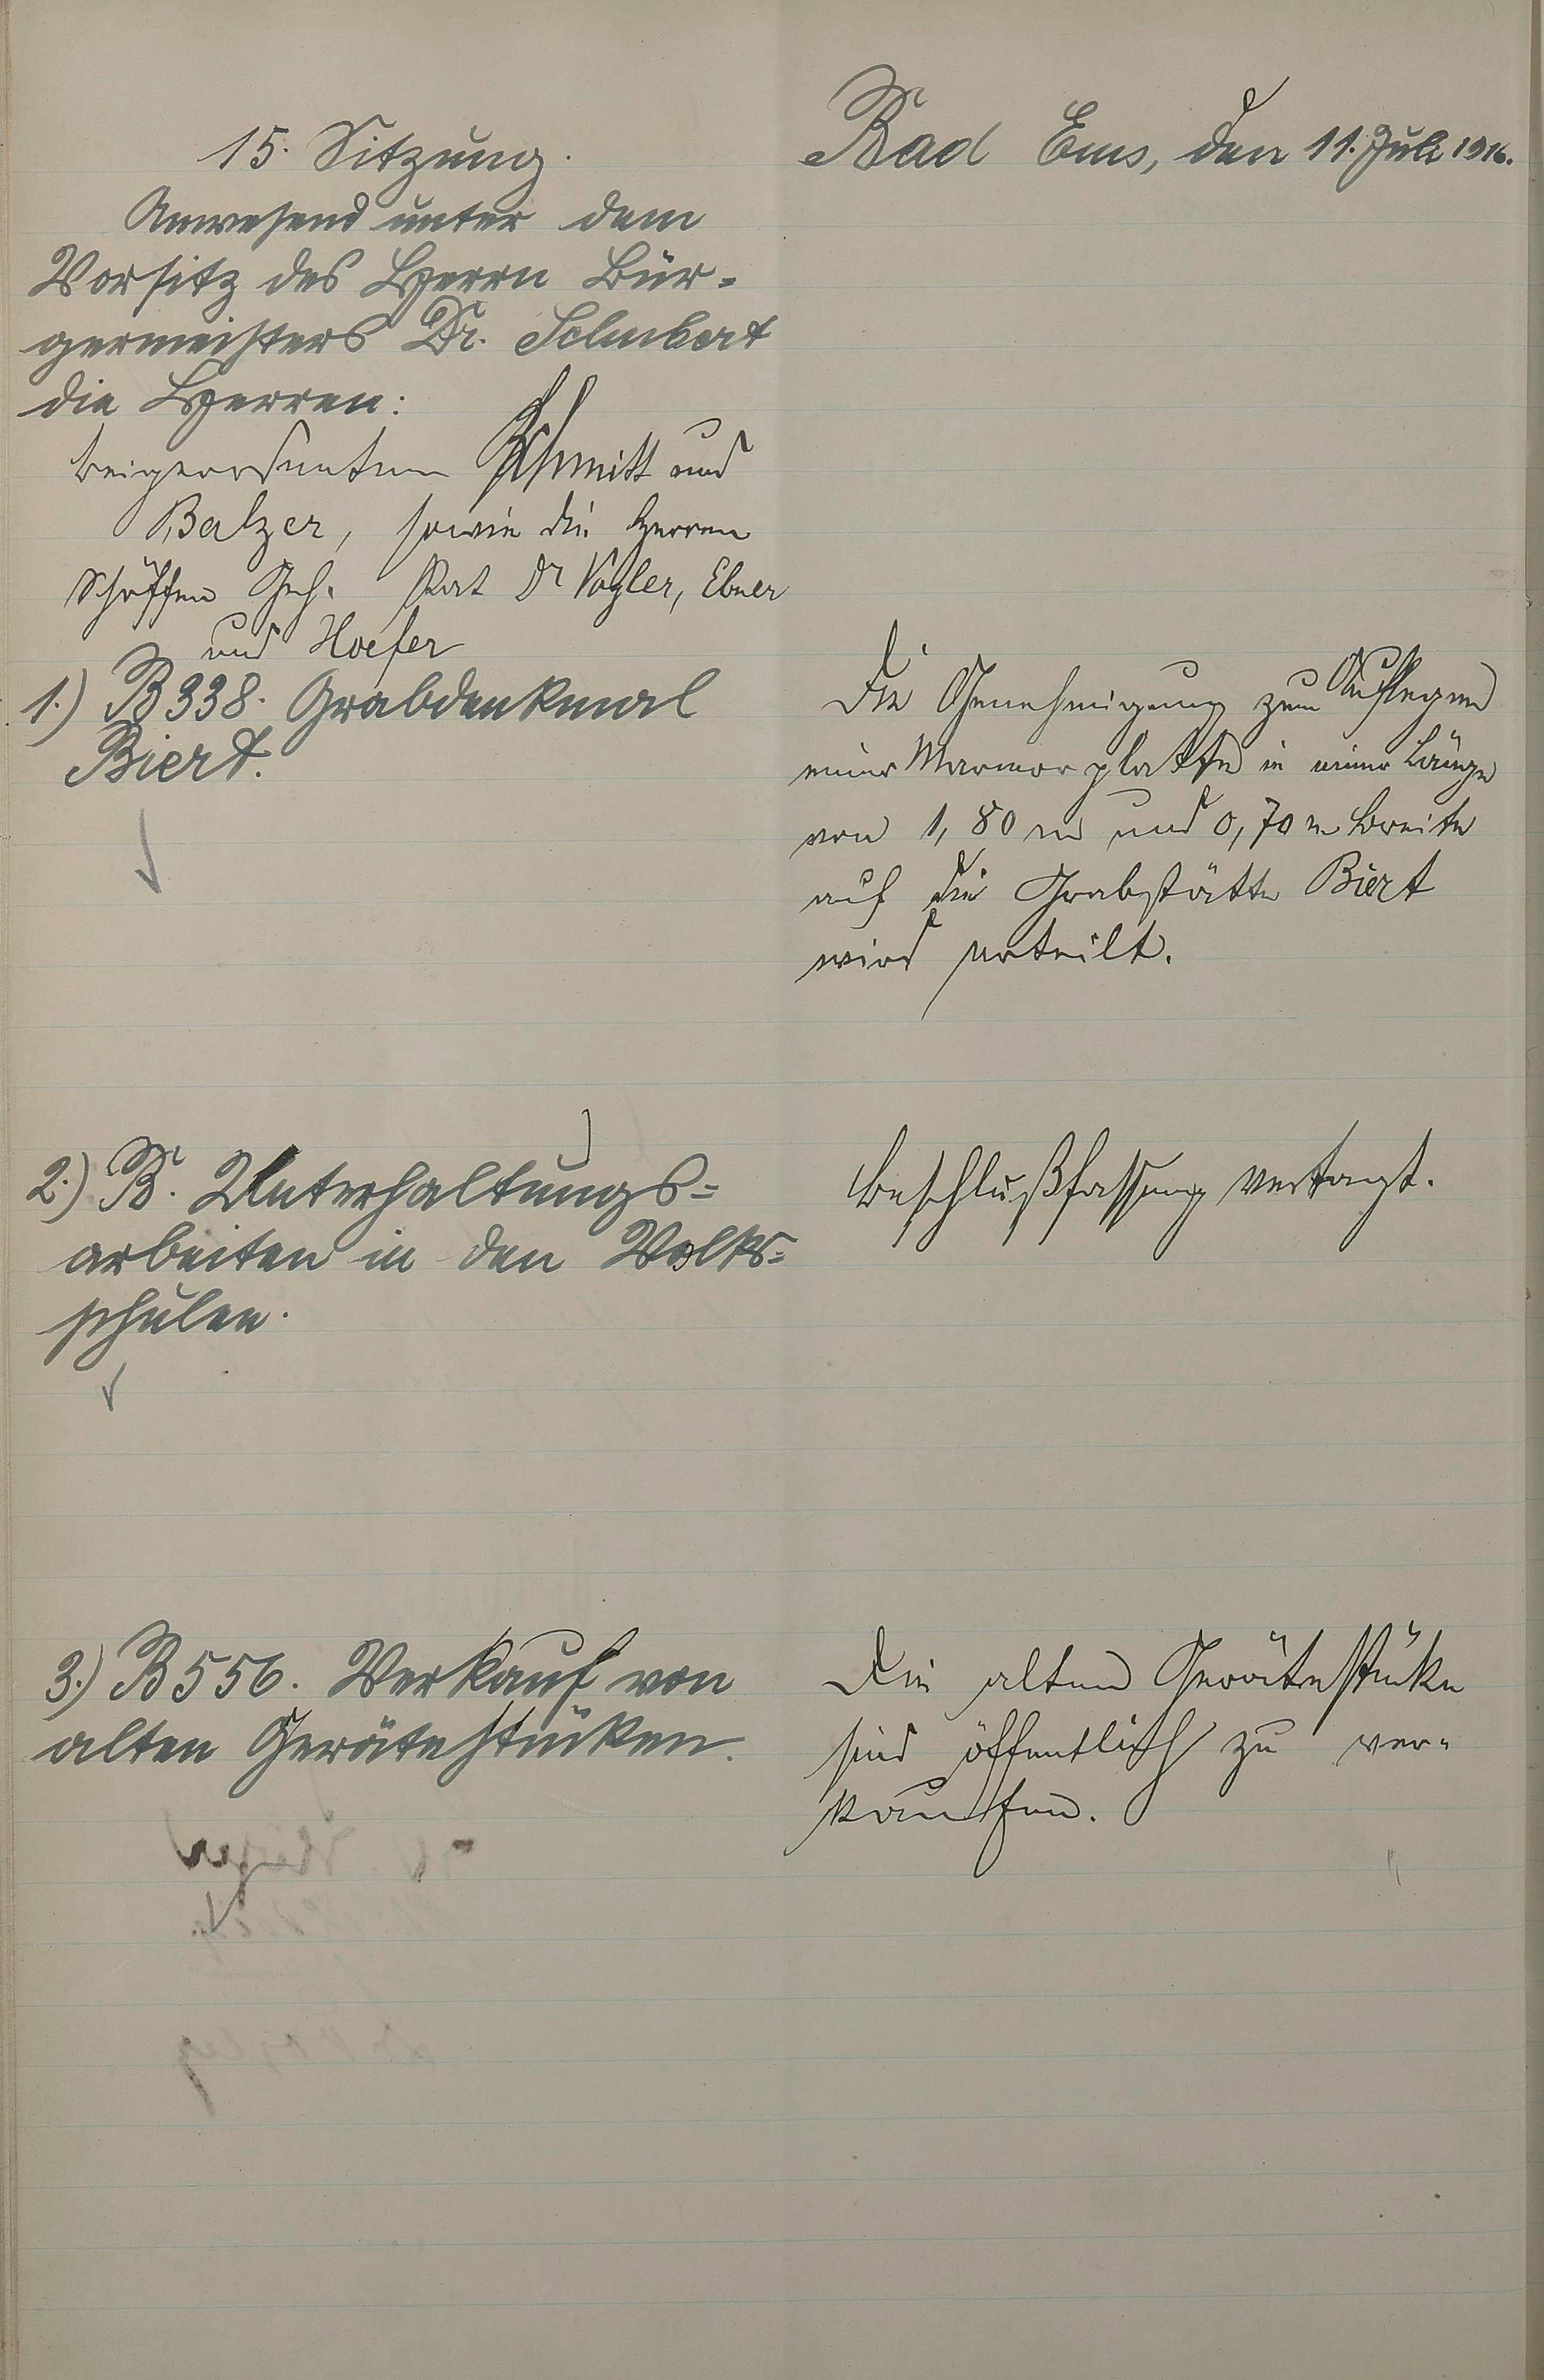 15. Sitzung.
Anwesend unter dem
Vorsitz des Herrn Bür-
germeisters Dr. Schubert
die Herren:
Beigeordneten Schmitt und
Balzer, sowie die Herren
Schöffen Geh. Rat Dr Vogler, Ebner
und Hoefer
Bad Ems, den 11. Juli 1916.
1.) B 338. Grabdenkmal
Biert.
Die Genehmigung zum Auflegen
einer Marmorplatte in einer Länge
von 1,80 m und 0,70 m Breite
auf die Grabstätte Biert
wird erteilt.
2.) B. Unterhaltungs-
arbeiten in den Volks-
schulen.
Beschlußfassung vertagt.
3.) B 556. Verkauf von
alten Gerätestücken.
Die alten Gerätestücke
sind öffentlich zu ver-
kaufen.